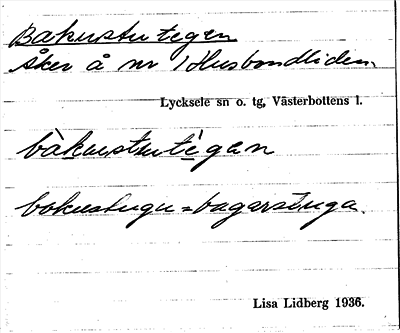 Bakustutegen
Åker å nr 1 Husbondliden
Lycksele sn o. tg, Västerbottens l.
bàkustutègan
bakustugu = bagarstuga.
Lisa Lidberg 1936.